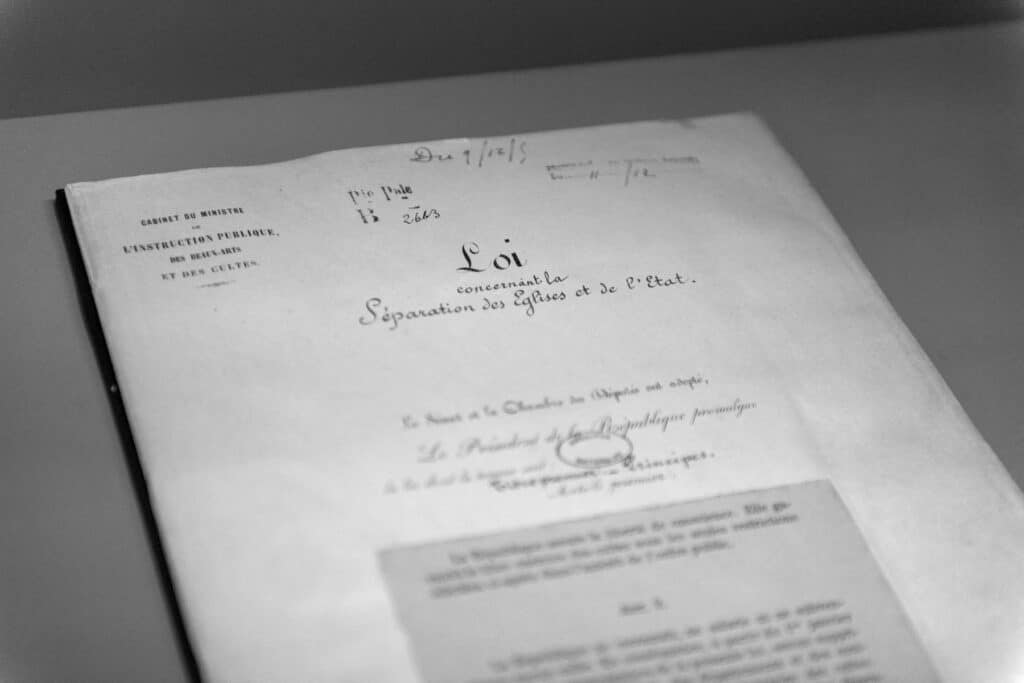 Du 9/12/5
11/12
Bie Pale
B 2643
CABINET DU MINISTRE
DE
L'INSTRUCTION PUBLIQUE,
DES BEAUX-ARTS
ET DES CULTES.
Loi
concernant la
Séparation des Eglises et de l'Etat.
Le Sénat et la Chambre des Députés ont adopté,
Le Président de la République promulgue
la loi dont la teneur suit :
Titre premier - Principes.
Article premier.
La République assure la liberté de conscience. Elle ga-
rantit le libre exercice des cultes sous les seules restrictions
édictées ci-après dans l'intérêt de l'ordre public.
Art. 2.
La République ne reconnaît, ne salarie ni ne subven-